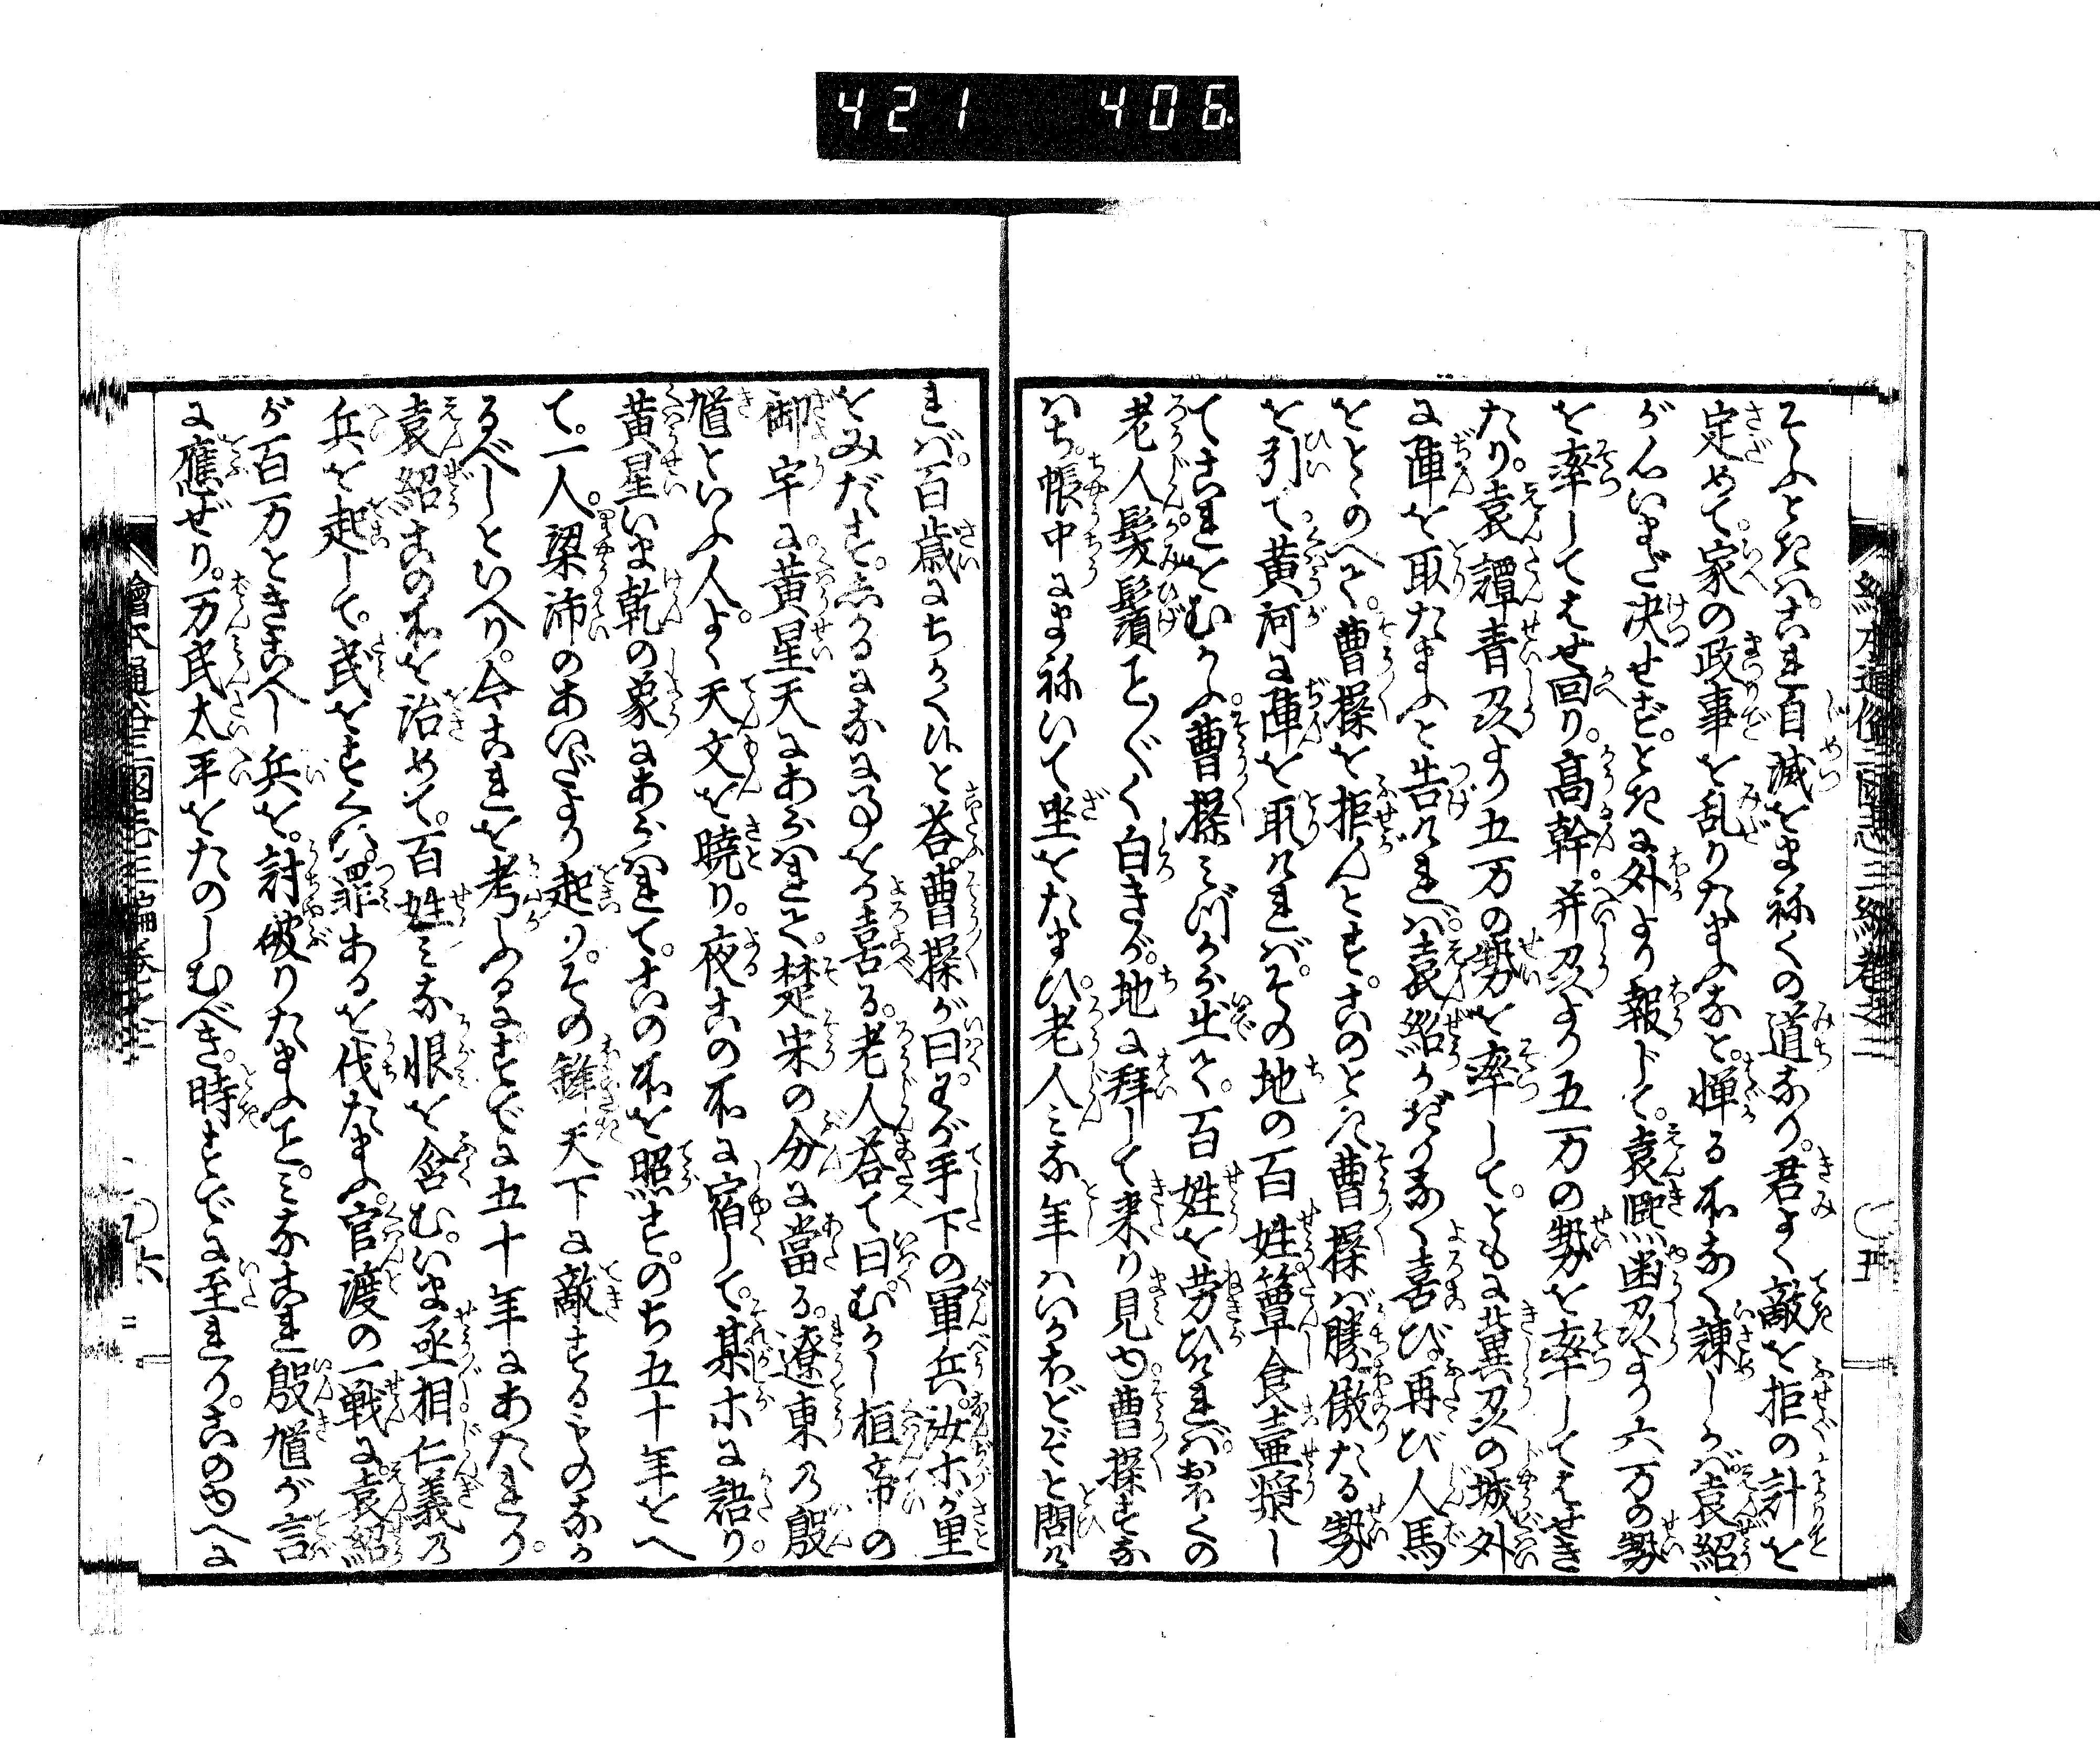 421 406
繪本通俗三國志三編卷之三
〇五
そふときハ。これ自滅をまねくの道なり。君よく敵を拒の計を
定めて。家の政事を乱りたまふなと。憚る所なく諫しかバ。袁紹
がんいまだ決せざるときに外より報じて。袁熈幽州より六万の勢
を率してはせ回り。高幹。并州より五万の勢を率してはせき
たり。袁譚青州より五万の勢を率して。ともに冀州の城外
に陣を取たまふと告けれバ。袁紹かぎりなく喜び。再び人馬
をとゝのへて。曹操を拒んとす。このとき曹操ハ勝傲たる勢
を引て。黄河に陣を取けれバ。その地の百姓簞食壷漿し
てこれをむかふ。曹操ミづから出て。百姓を労ひけれバ。おほくの
老人髪鬚ことごとく白きが。地に拜して来り見ゆ。曹操すな
ハち。帳中にまねいて坐をたまひ。老人ミな年ハいかほどぞと問け
れバ。百歳にちかくひと荅。曹操が曰。わが手下の軍兵。汝ホが里
をみだす。しかるになに事をか喜る。老人荅て曰。むかし桓帝の
御宇に。黄星天にあらハれて。楚宋の分に當る。遼東の殷
馗といふ人。よく天文を暁り。夜この所に宿して。某ホに語り。
黄星いま乾の象にあらハれて。この所を照す。のち五十年をへ
て。一人。梁沛のあいだより起り。その鋒天下に敵するものなか
るべしといへり。今これを考ふるに。すでに五十年にあたれり。
袁紹この所を治めて。百姓ミな恨を含む。いま丞相仁義の
兵を起して。民をすくひ。罪あるを伐たまふ。官渡の一戦に。袁紹
が百万ときこへし兵を。討破りたまふこと。ミなこれ殷馗が言
に應ぜり。万民太平をたのしむべき。時すでに至れり。このゆへに
繪本通俗三國志三編卷之三
〇六